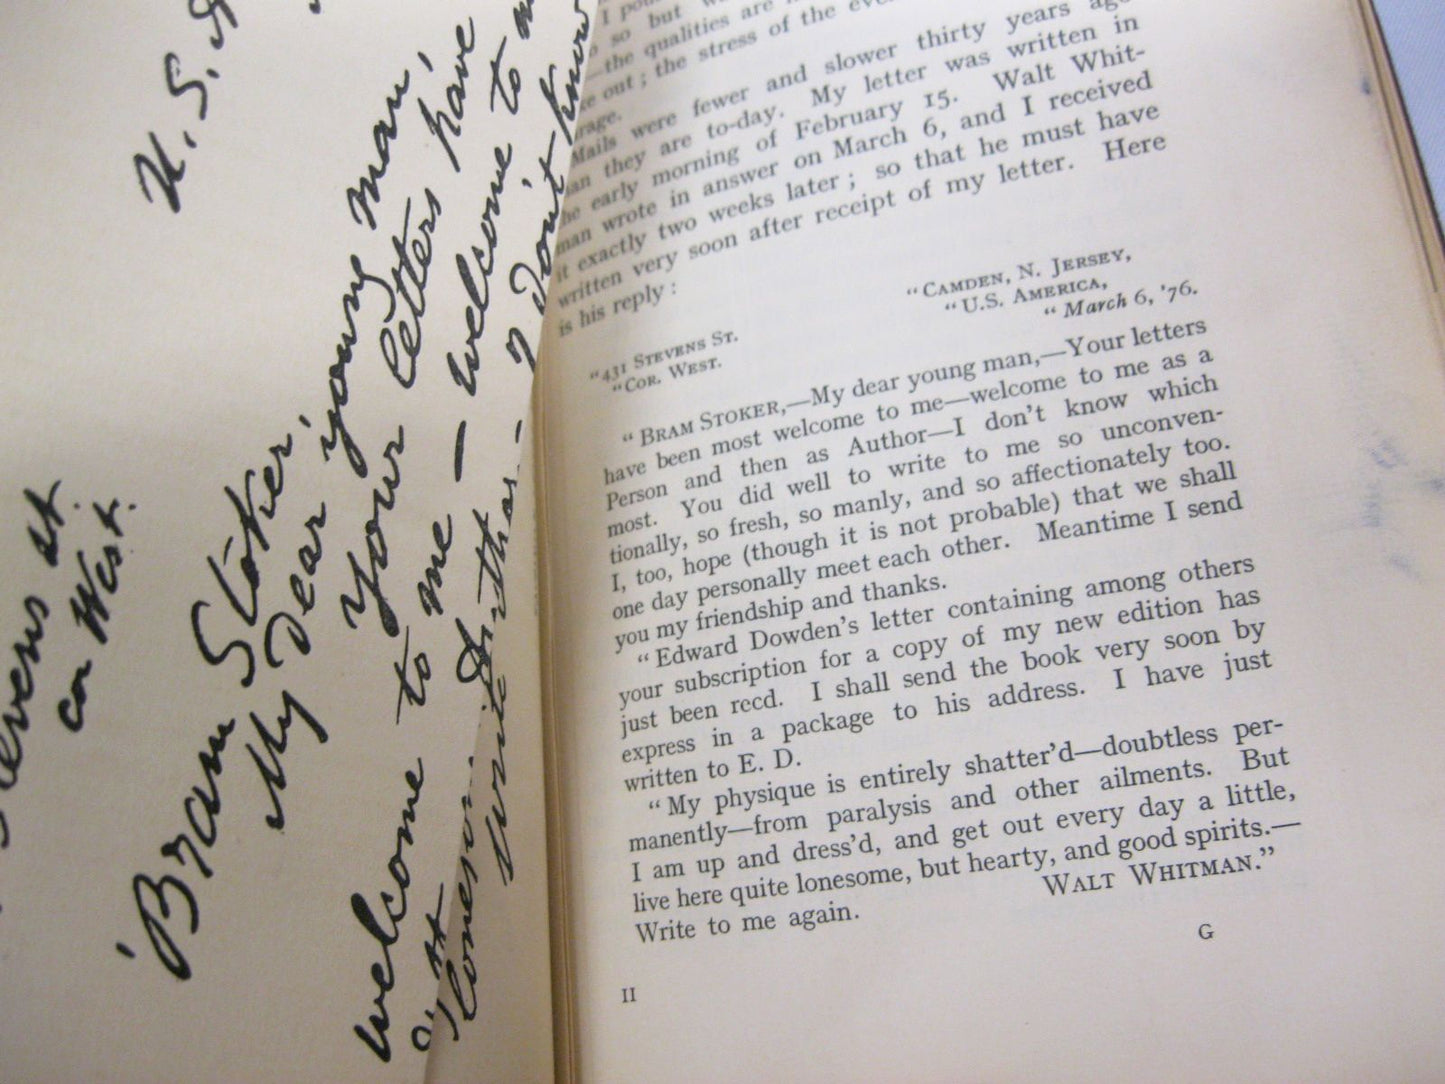 U. S. A
Stevens st.
cor West.
Bram Stoker,
My dear young man,
Your letters have
welcome to me - welcome to
Author - I don't know
write
so but
—the qualities are
out; the stress of the
Mails were fewer and slower thirty years ago
than they are to-day. My letter was written in
the early morning of February 15. Walt Whit-
man wrote in answer on March 6, and I received
it exactly two weeks later; so that he must have
written very soon after receipt of my letter. Here
is his reply:
"CAMDEN, N. JERSEY,
"U.S. AMERICA,
"March 6, '76.
"431 STEVENS ST.
"COR. WEST.
"BRAM STOKER,—My dear young man,—Your letters
have been most welcome to me—welcome to me as a
Person and then as Author—I don't know which
most. You did well to write to me so unconven-
tionally, so fresh, so manly, and so affectionately too.
I, too, hope (though it is not probable) that we shall
one day personally meet each other. Meantime I send
you my friendship and thanks.
"Edward Dowden's letter containing among others
your subscription for a copy of my new edition has
just been recd. I shall send the book very soon by
express in a package to his address. I have just
written to E. D.
"My physique is entirely shatter'd—doubtless per-
manently—from paralysis and other ailments. But
I am up and dress'd, and get out every day a little,
live here quite lonesome, but hearty, and good spirits.—
Write to me again.
WALT WHITMAN."
II
G